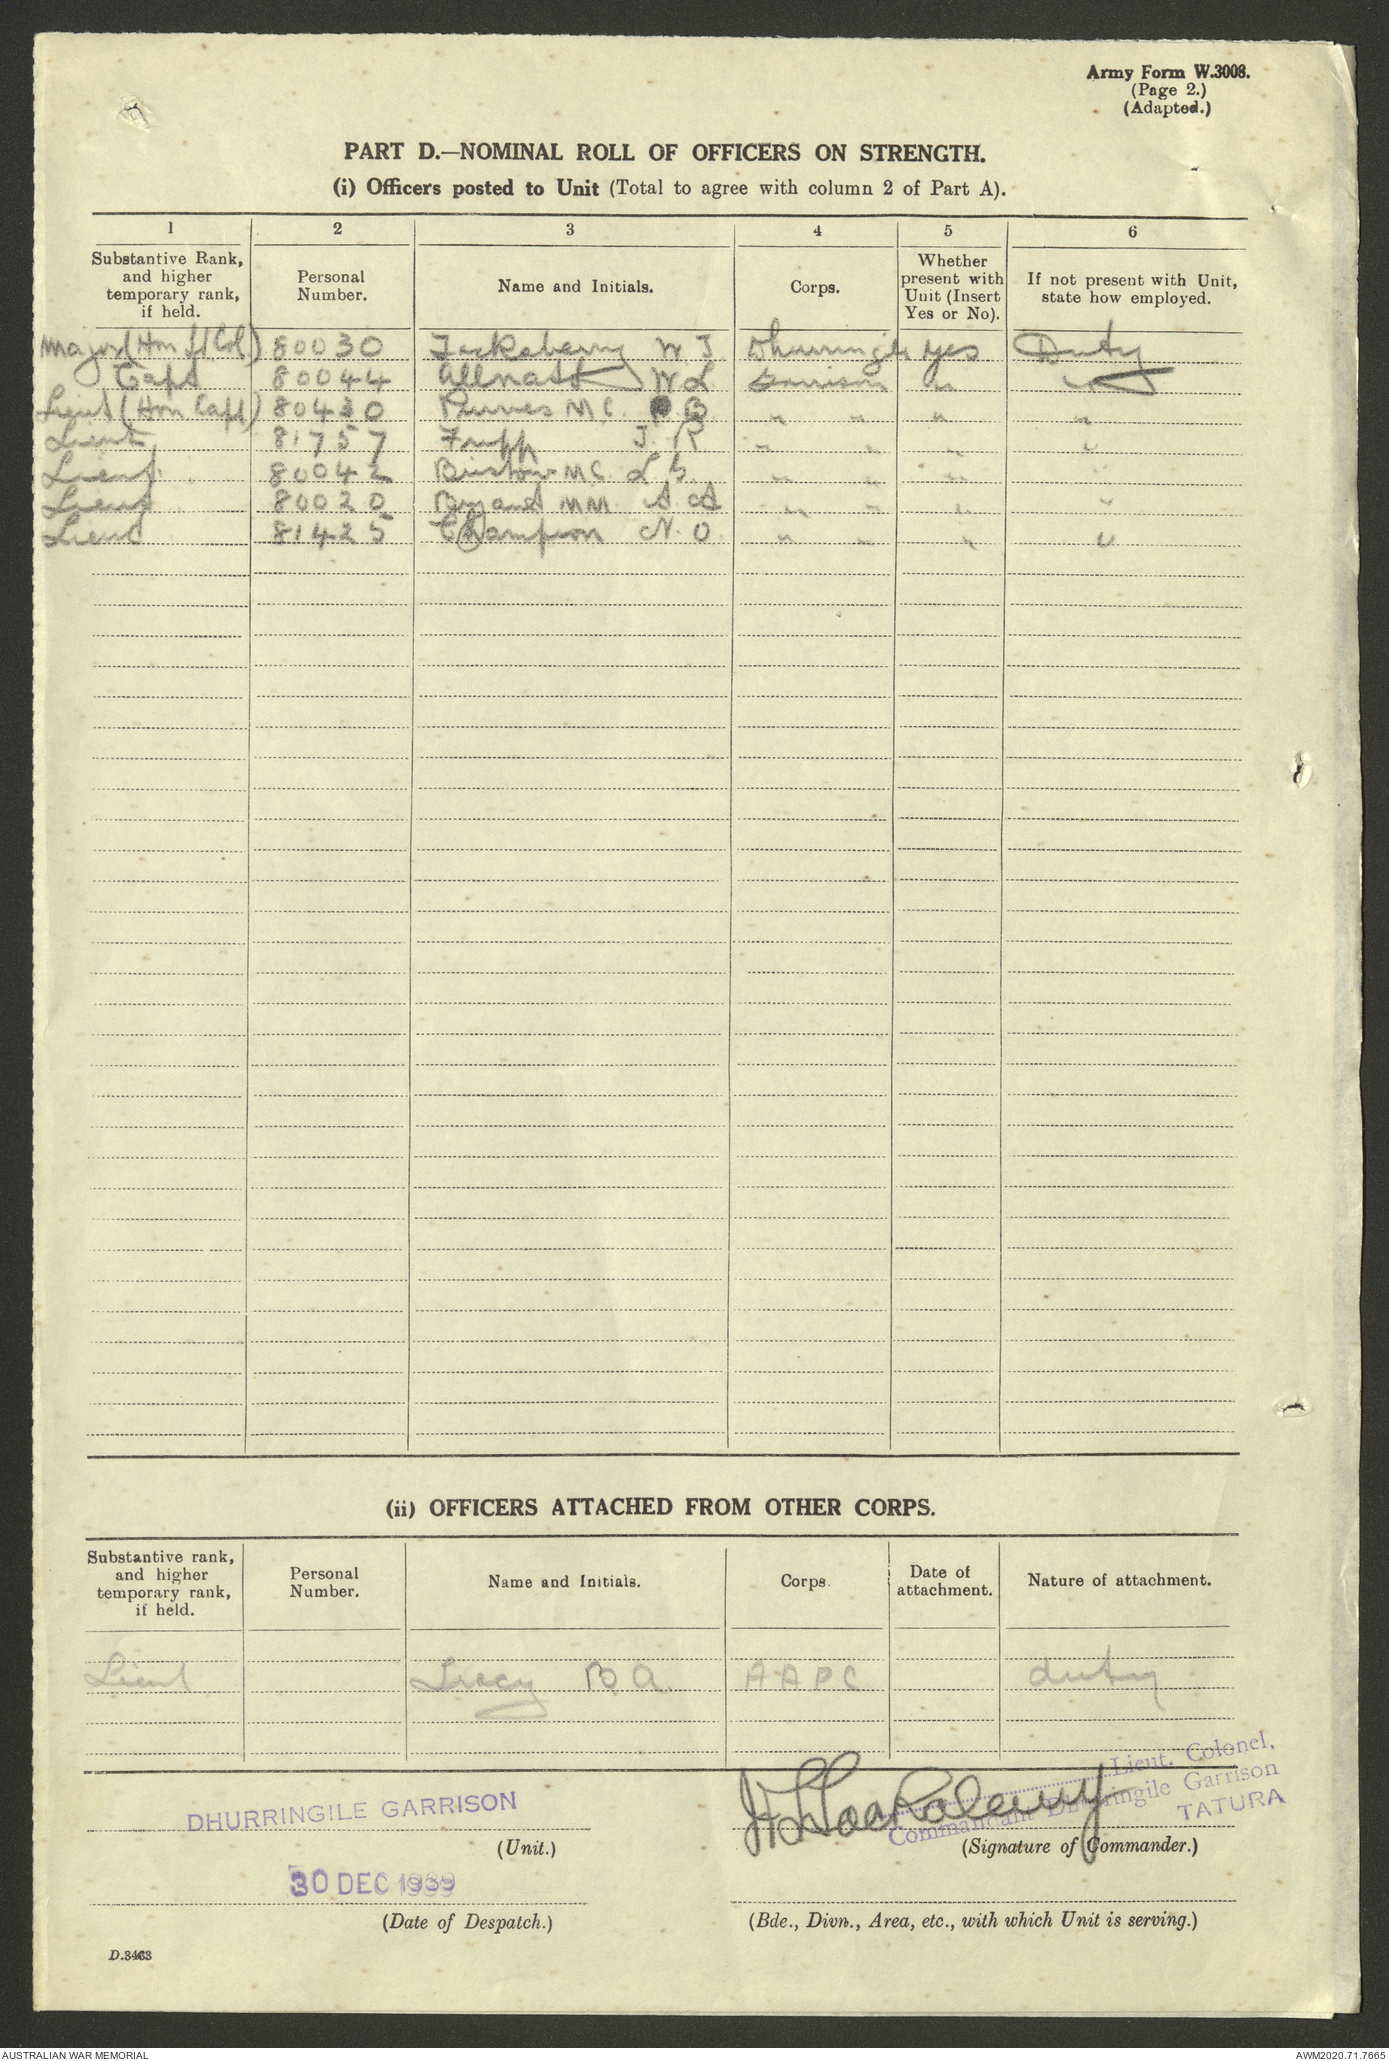 Army Form W.3008.
(Page 2.)
(Adapted.)
PART D.—NOMINAL ROLL OF OFFICERS ON STRENGTH.
(i) Officers posted to Unit (Total to agree with column 2 of Part A).
1 2 3 4 5 6
Substantive Rank, and higher temporary rank, if held. Personal Number. Name and Initials. Corps. Whether present with Unit (Insert Yes or No). If not present with Unit, state how employed.
Major (Hon Lt Col) 80030 Tackaberry W J Dhurringile yes Duty
Capt 80044 Allnatt W L Garrison " "
Lieut (Hon Capt) 80430 Purves M C. B. " " " "
Lieut 81757 Fripp J. R " " " "
Lieut 80042 Bristow M C. L S. " " " "
Lieut 80020 Bryand M M. A A " " " "
Lieut 81425 Champion N. O. " " " "
(ii) OFFICERS ATTACHED FROM OTHER CORPS.
Substantive rank, and higher temporary rank, if held. Personal Number. Name and Initials. Corps. Date of attachment. Nature of attachment.
Lieut Tracy B. A. A A P C duty
Lieut. Colonel,
Commandant Dhurringile Garrison
TATURA
DHURRINGILE GARRISON
(Unit.)
(Signature of Commander.)
30 DEC 1939
(Date of Despatch.)
(Bde., Divn., Area, etc., with which Unit is serving.)
D.3463
AUSTRALIAN WAR MEMORIAL
AWM2020.71.7665